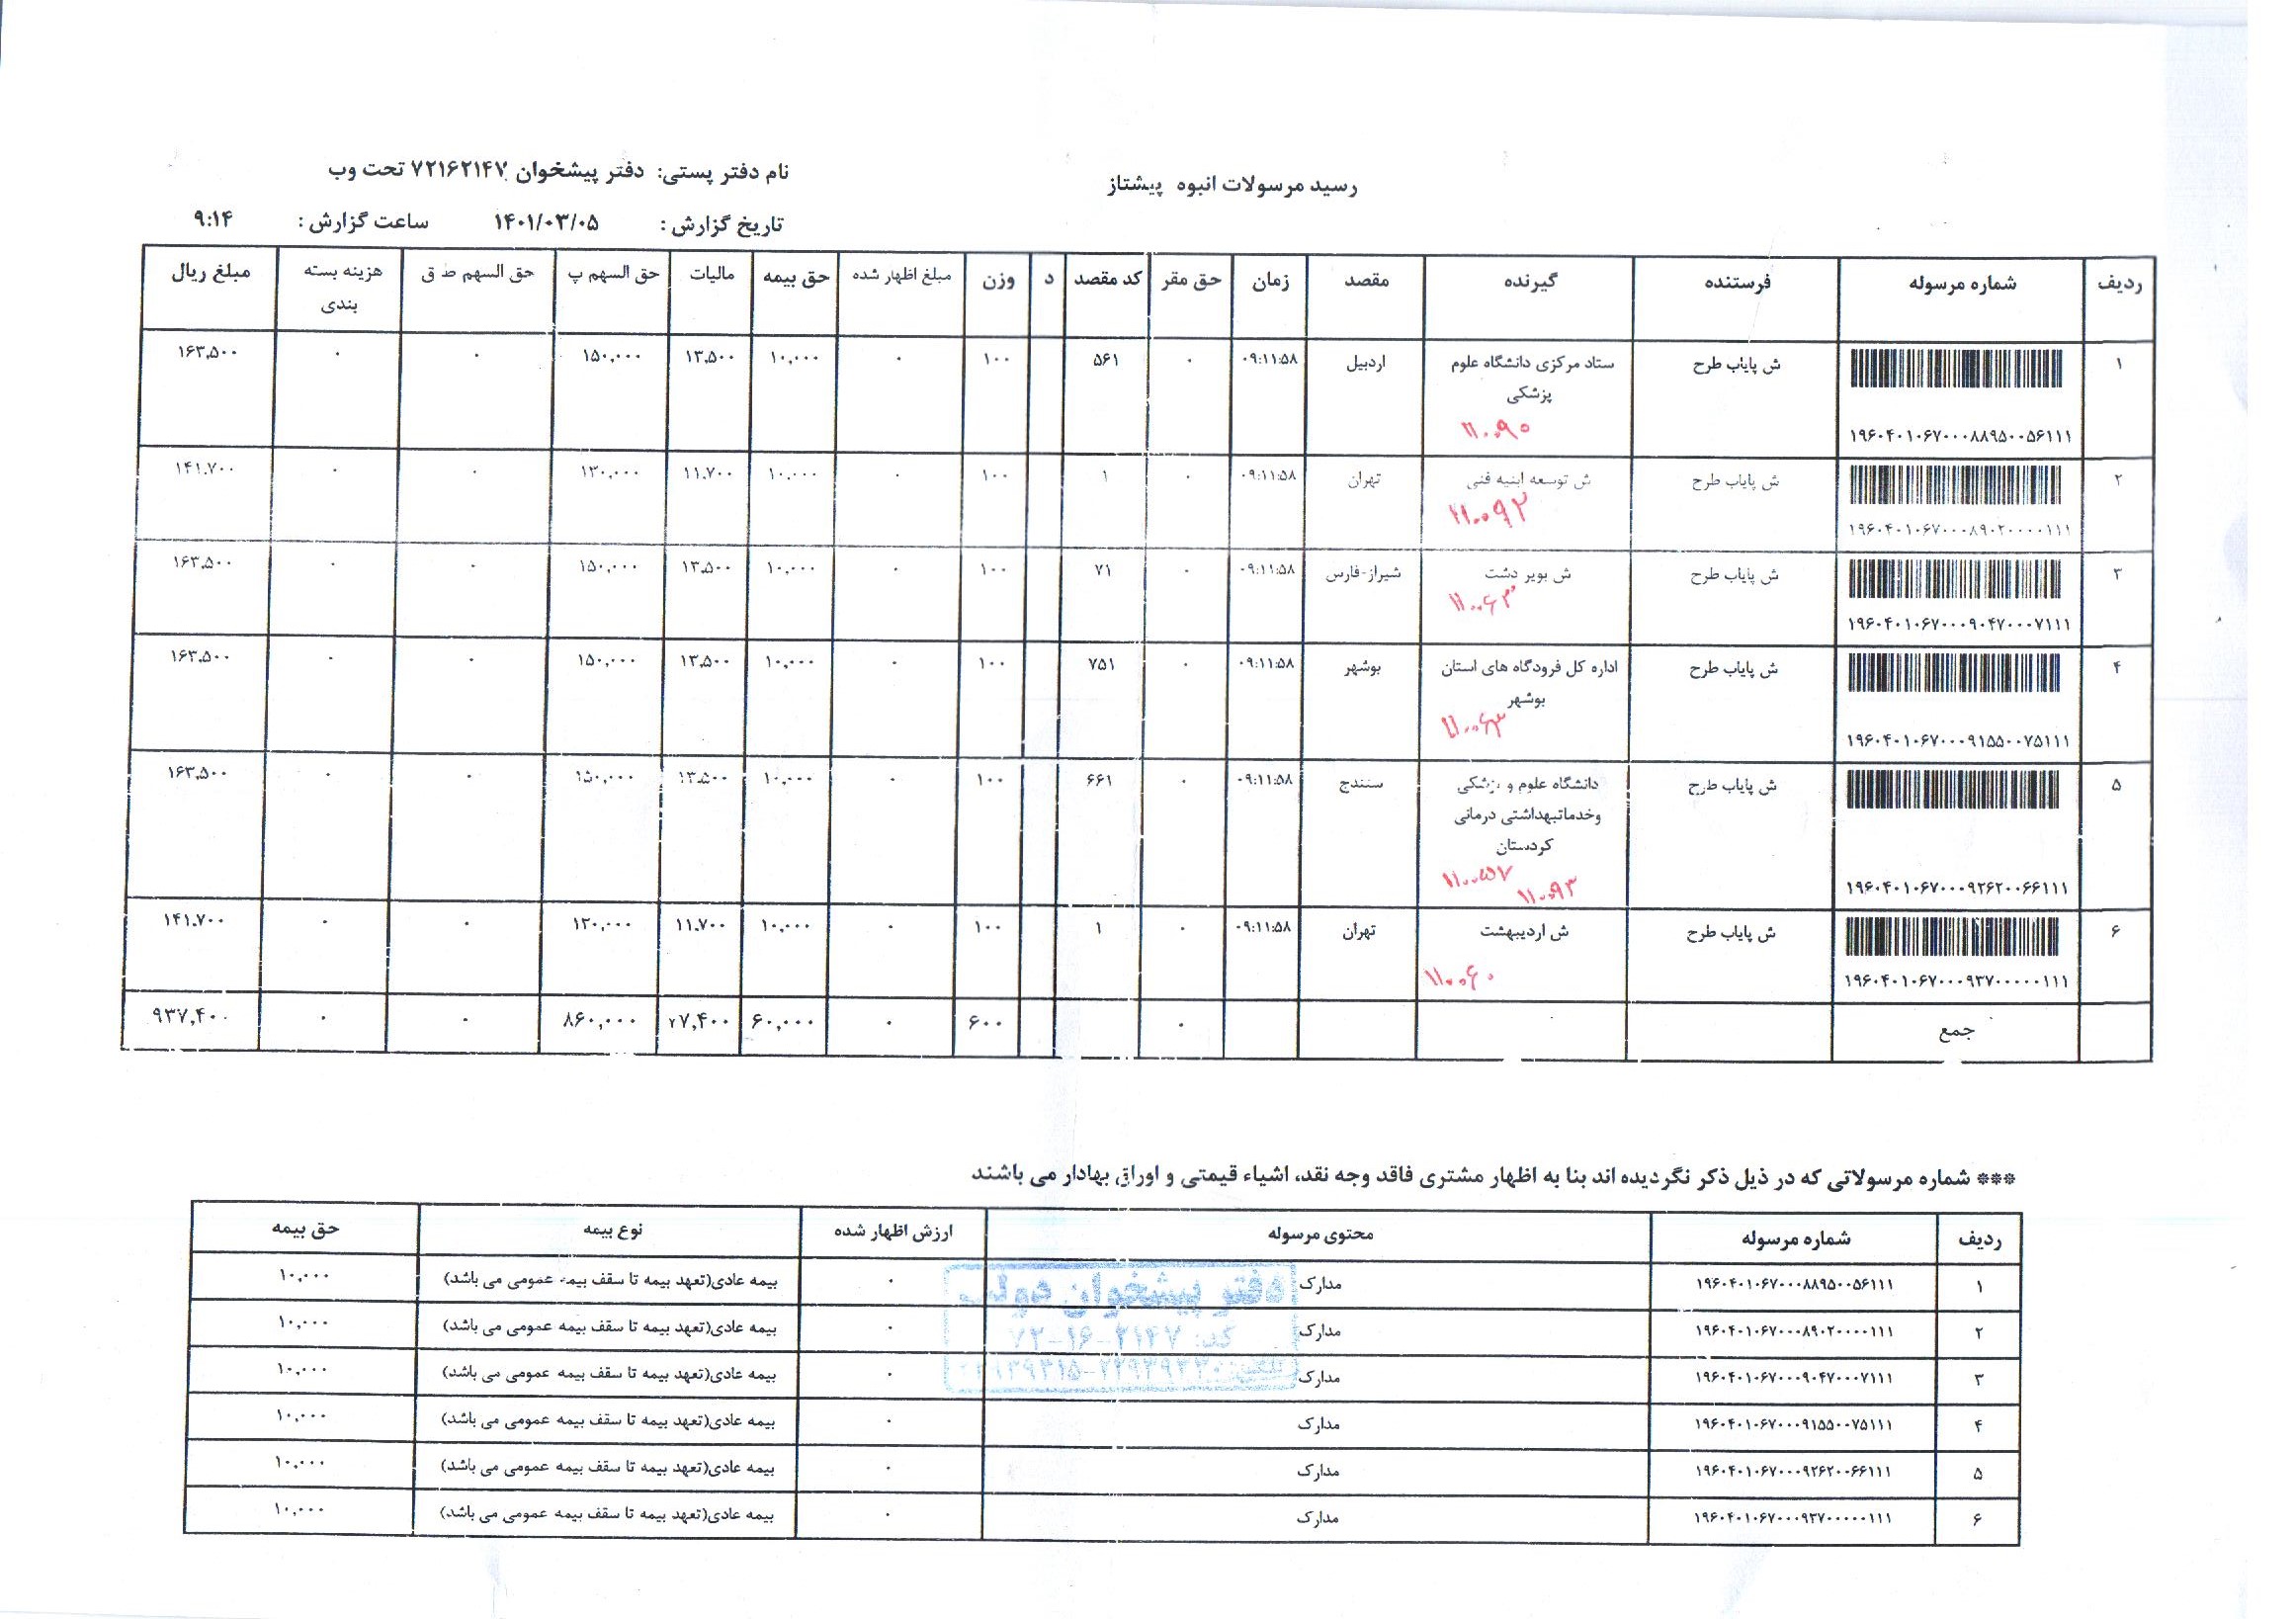 رسید مرسولات انبوه پیشتاز
نام دفتر پستی: دفتر پیشخوان ۷۲۱۶۲۱۴۷ تحت وب
تاریخ گزارش : ۱۴۰۱/۰۳/۰۵ ساعت گزارش : ۹:۱۴
ردیف شماره مرسوله فرستنده گیرنده مقصد زمان حق مقر کد مقصد د وزن مبلغ اظهار شده حق بیمه مالیات حق السهم پ حق السهم ط ق هزینه بسته بندی مبلغ ریال
۱ ش پایاب طرح ستاد مرکزی دانشگاه علوم اردبیل ۰۹:۱۱:۵۸ ۰ ۵۶۱ ۱۰۰ ۰ ۱۰,۰۰۰ ۱۳,۵۰۰ ۱۵۰,۰۰۰ ۰ ۰ ۱۶۳,۵۰۰
پزشکی
۱۱۰۰۹۰
۱۹۶۰۴۰۱۰۶۷۰۰۰۸۸۹۵۰۰۵۶۱۱۱
۲ ش پایاب طرح ش توسعه ابنیه فنی تهران ۰۹:۱۱:۵۸ ۰ ۱ ۱۰۰ ۰ ۱۰,۰۰۰ ۱۱,۷۰۰ ۱۳۰,۰۰۰ ۰ ۰ ۱۴۱,۷۰۰
۱۹۶۰۴۰۱۰۶۷۰۰۰۸۹۰۲۰۰۰۰۱۱۱
۳ ش پایاب طرح ش بویر دشت شیراز-فارس ۰۹:۱۱:۵۸ ۰ ۷۱ ۱۰۰ ۰ ۱۰,۰۰۰ ۱۳,۵۰۰ ۱۵۰,۰۰۰ ۰ ۰ ۱۶۳,۵۰۰
۱۱۰۰۶۳
۱۹۶۰۴۰۱۰۶۷۰۰۰۹۰۴۷۰۰۰۷۱۱۱
۴ ش پایاب طرح اداره کل فرودگاه های استان بوشهر ۰۹:۱۱:۵۸ ۰ ۷۵۱ ۱۰۰ ۰ ۱۰,۰۰۰ ۱۳,۵۰۰ ۱۵۰,۰۰۰ ۰ ۰ ۱۶۳,۵۰۰
بوشهر
۱۱۰۰۶۳
۱۹۶۰۴۰۱۰۶۷۰۰۰۹۱۵۵۰۰۷۵۱۱۱
۵ ش پایاب طرح دانشگاه علوم و پزشکی سنندج ۰۹:۱۱:۵۸ ۰ ۶۶۱ ۱۰۰ ۰ ۱۰,۰۰۰ ۱۳,۵۰۰ ۱۵۰,۰۰۰ ۰ ۰ ۱۶۳,۵۰۰
وخدماتبهداشتی درمانی
کردستان
۱۱۰۰۵۷
۱۱۰۰۹۳
۱۹۶۰۴۰۱۰۶۷۰۰۰۹۲۶۲۰۰۶۶۱۱۱
۶ ش پایاب طرح ش اردیبهشت تهران ۰۹:۱۱:۵۸ ۰ ۱ ۱۰۰ ۰ ۱۰,۰۰۰ ۱۱,۷۰۰ ۱۳۰,۰۰۰ ۰ ۰ ۱۴۱,۷۰۰
۱۱۰۰۶۰
۱۹۶۰۴۰۱۰۶۷۰۰۰۹۳۷۰۰۰۰۰۱۱۱
جمع ۰ ۶۰۰ ۰ ۶۰,۰۰۰ ۷۷,۴۰۰ ۸۶۰,۰۰۰ ۰ ۰ ۹۳۷,۴۰۰
*** شماره مرسولاتی که در ذیل ذکر نگردیده اند بنا به اظهار مشتری فاقد وجه نقد، اشیاء قیمتی و اوراق بهادار می باشند
ردیف شماره مرسوله محتوی مرسوله ارزش اظهار شده نوع بیمه حق بیمه
۱ ۱۹۶۰۴۰۱۰۶۷۰۰۰۸۸۹۵۰۰۵۶۱۱۱ مدارک ۰ بیمه عادی(تعهد بیمه تا سقف بیمه عمومی می باشد) ۱۰,۰۰۰
۲ ۱۹۶۰۴۰۱۰۶۷۰۰۰۸۹۰۲۰۰۰۰۱۱۱ مدارک ۰ بیمه عادی(تعهد بیمه تا سقف بیمه عمومی می باشد) ۱۰,۰۰۰
۳ ۱۹۶۰۴۰۱۰۶۷۰۰۰۹۰۴۷۰۰۰۷۱۱۱ مدارک ۰ بیمه عادی(تعهد بیمه تا سقف بیمه عمومی می باشد) ۱۰,۰۰۰
۴ ۱۹۶۰۴۰۱۰۶۷۰۰۰۹۱۵۵۰۰۷۵۱۱۱ مدارک ۰ بیمه عادی(تعهد بیمه تا سقف بیمه عمومی می باشد) ۱۰,۰۰۰
۵ ۱۹۶۰۴۰۱۰۶۷۰۰۰۹۲۶۲۰۰۶۶۱۱۱ مدارک ۰ بیمه عادی(تعهد بیمه تا سقف بیمه عمومی می باشد) ۱۰,۰۰۰
۶ ۱۹۶۰۴۰۱۰۶۷۰۰۰۹۳۷۰۰۰۰۰۱۱۱ مدارک ۰ بیمه عادی(تعهد بیمه تا سقف بیمه عمومی می باشد) ۱۰,۰۰۰
دفتر پیشخوان دولت
کد: ۷۲-۱۶-۲۱۴۷